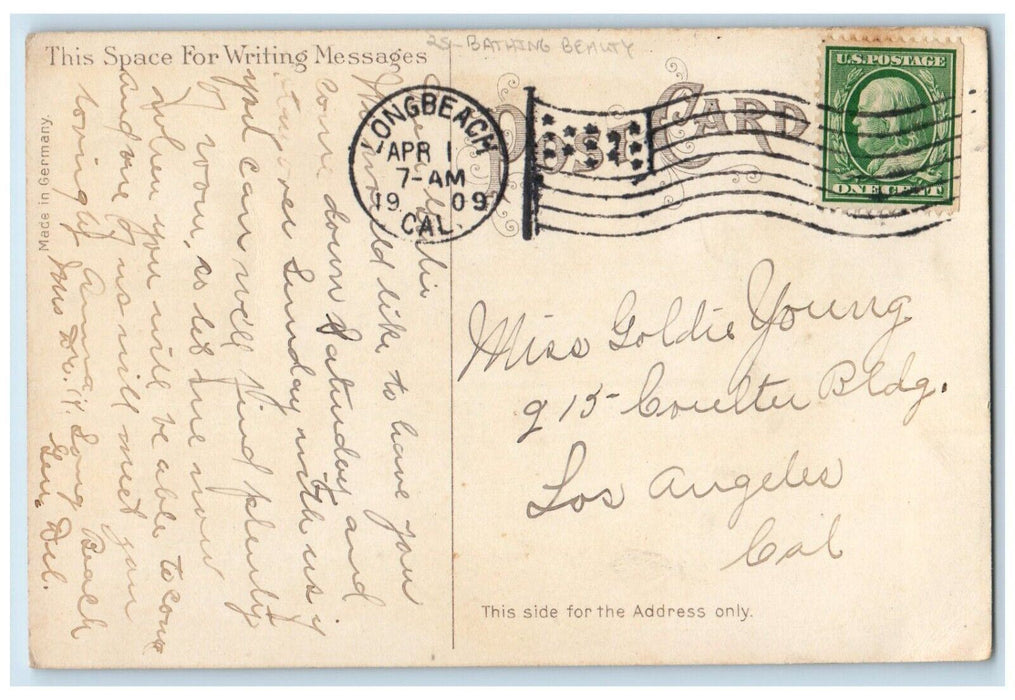 This Space For Writing Messages
25- BATHING BEAUTY
POST CARD
U.S. POSTAGE
ONE CENT
LONG BEACH
APR 1
7-AM
1909
CAL.
Made in Germany.
We would like to have you
come down Saturday and
stay over Sunday with us if
you can will find plenty
of room, so let me now
when you will be able to come
and one of us will meet you
lovingly Anna
Long Beach
Gen. Del.
Miss Goldie Young
915- Coulter Bldg.
Los Angeles
Cal
This side for the Address only.